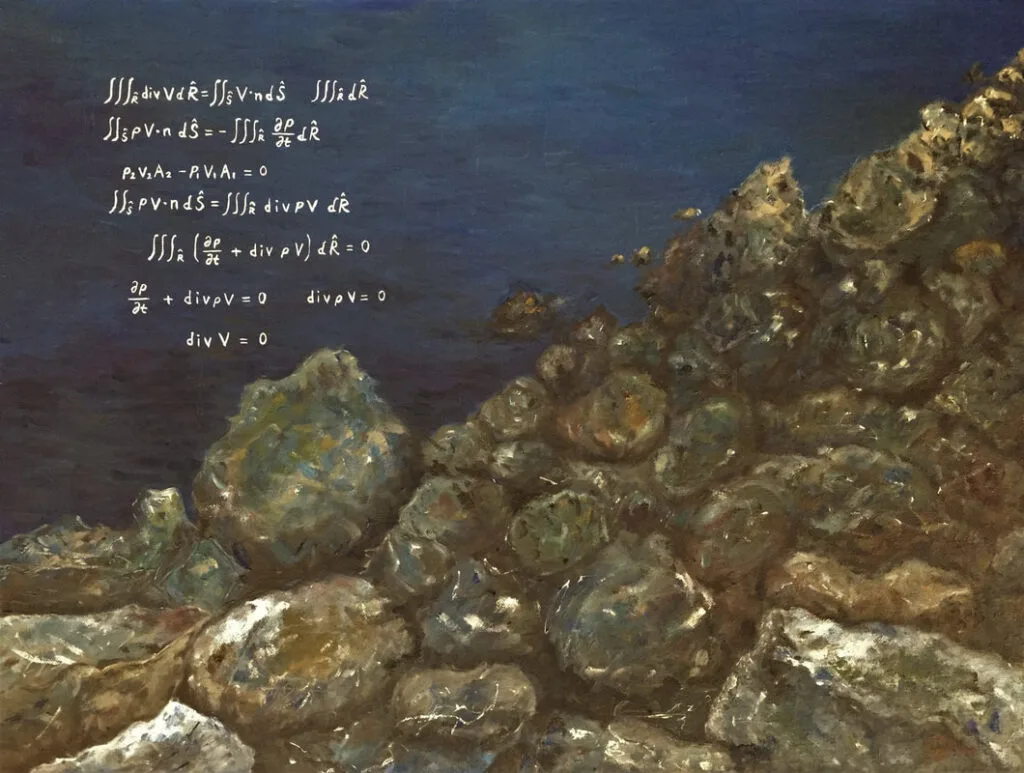 ∭_R̂ div V d R̂ = ∬_Ŝ V·n d Ŝ   ∭_R̂ d R̂
∬_Ŝ ρ V·n d Ŝ = - ∭_R̂ ∂ρ/∂t d R̂
ρ₂ V₂ A₂ - ρ₁ V₁ A₁ = 0
∬_Ŝ ρ V·n d Ŝ = ∭_R̂ div ρ V d R̂
∭_R̂ (∂ρ/∂t + div ρ V) d R̂ = 0
∂ρ/∂t + div ρ V = 0   div ρ V = 0
div V = 0